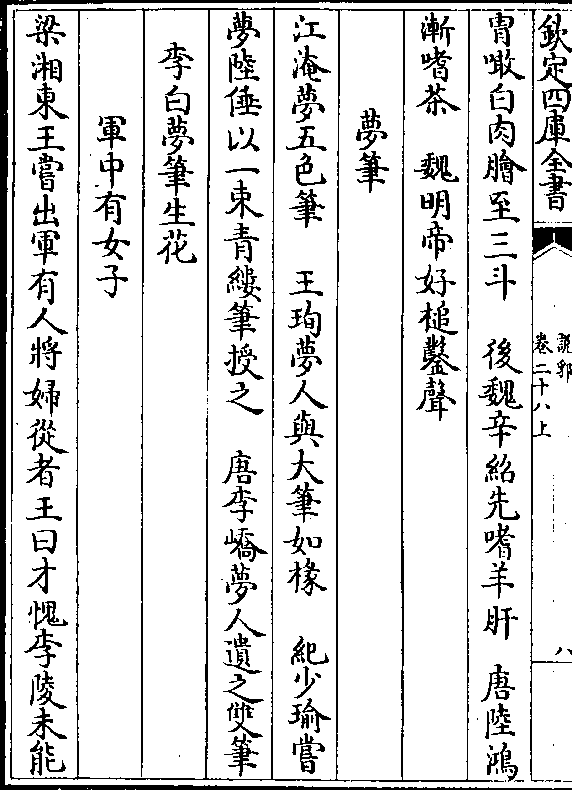 欽定四庫全書
說郛
卷二十八上
八
胄噉白肉膾至三斗　後魏辛紹先嗜羊肝　唐陸鴻
漸嗜茶　魏明帝好槌鑿聲
夢筆
江淹夢五色筆　王珣夢人與大筆如椽　紀少瑜嘗
夢陸倕以一束青縷筆授之　唐李嶠夢人遺之雙筆
李白夢筆生花
軍中有女子
梁湘東王嘗出軍有人將婦從者王曰才愧李陵未能